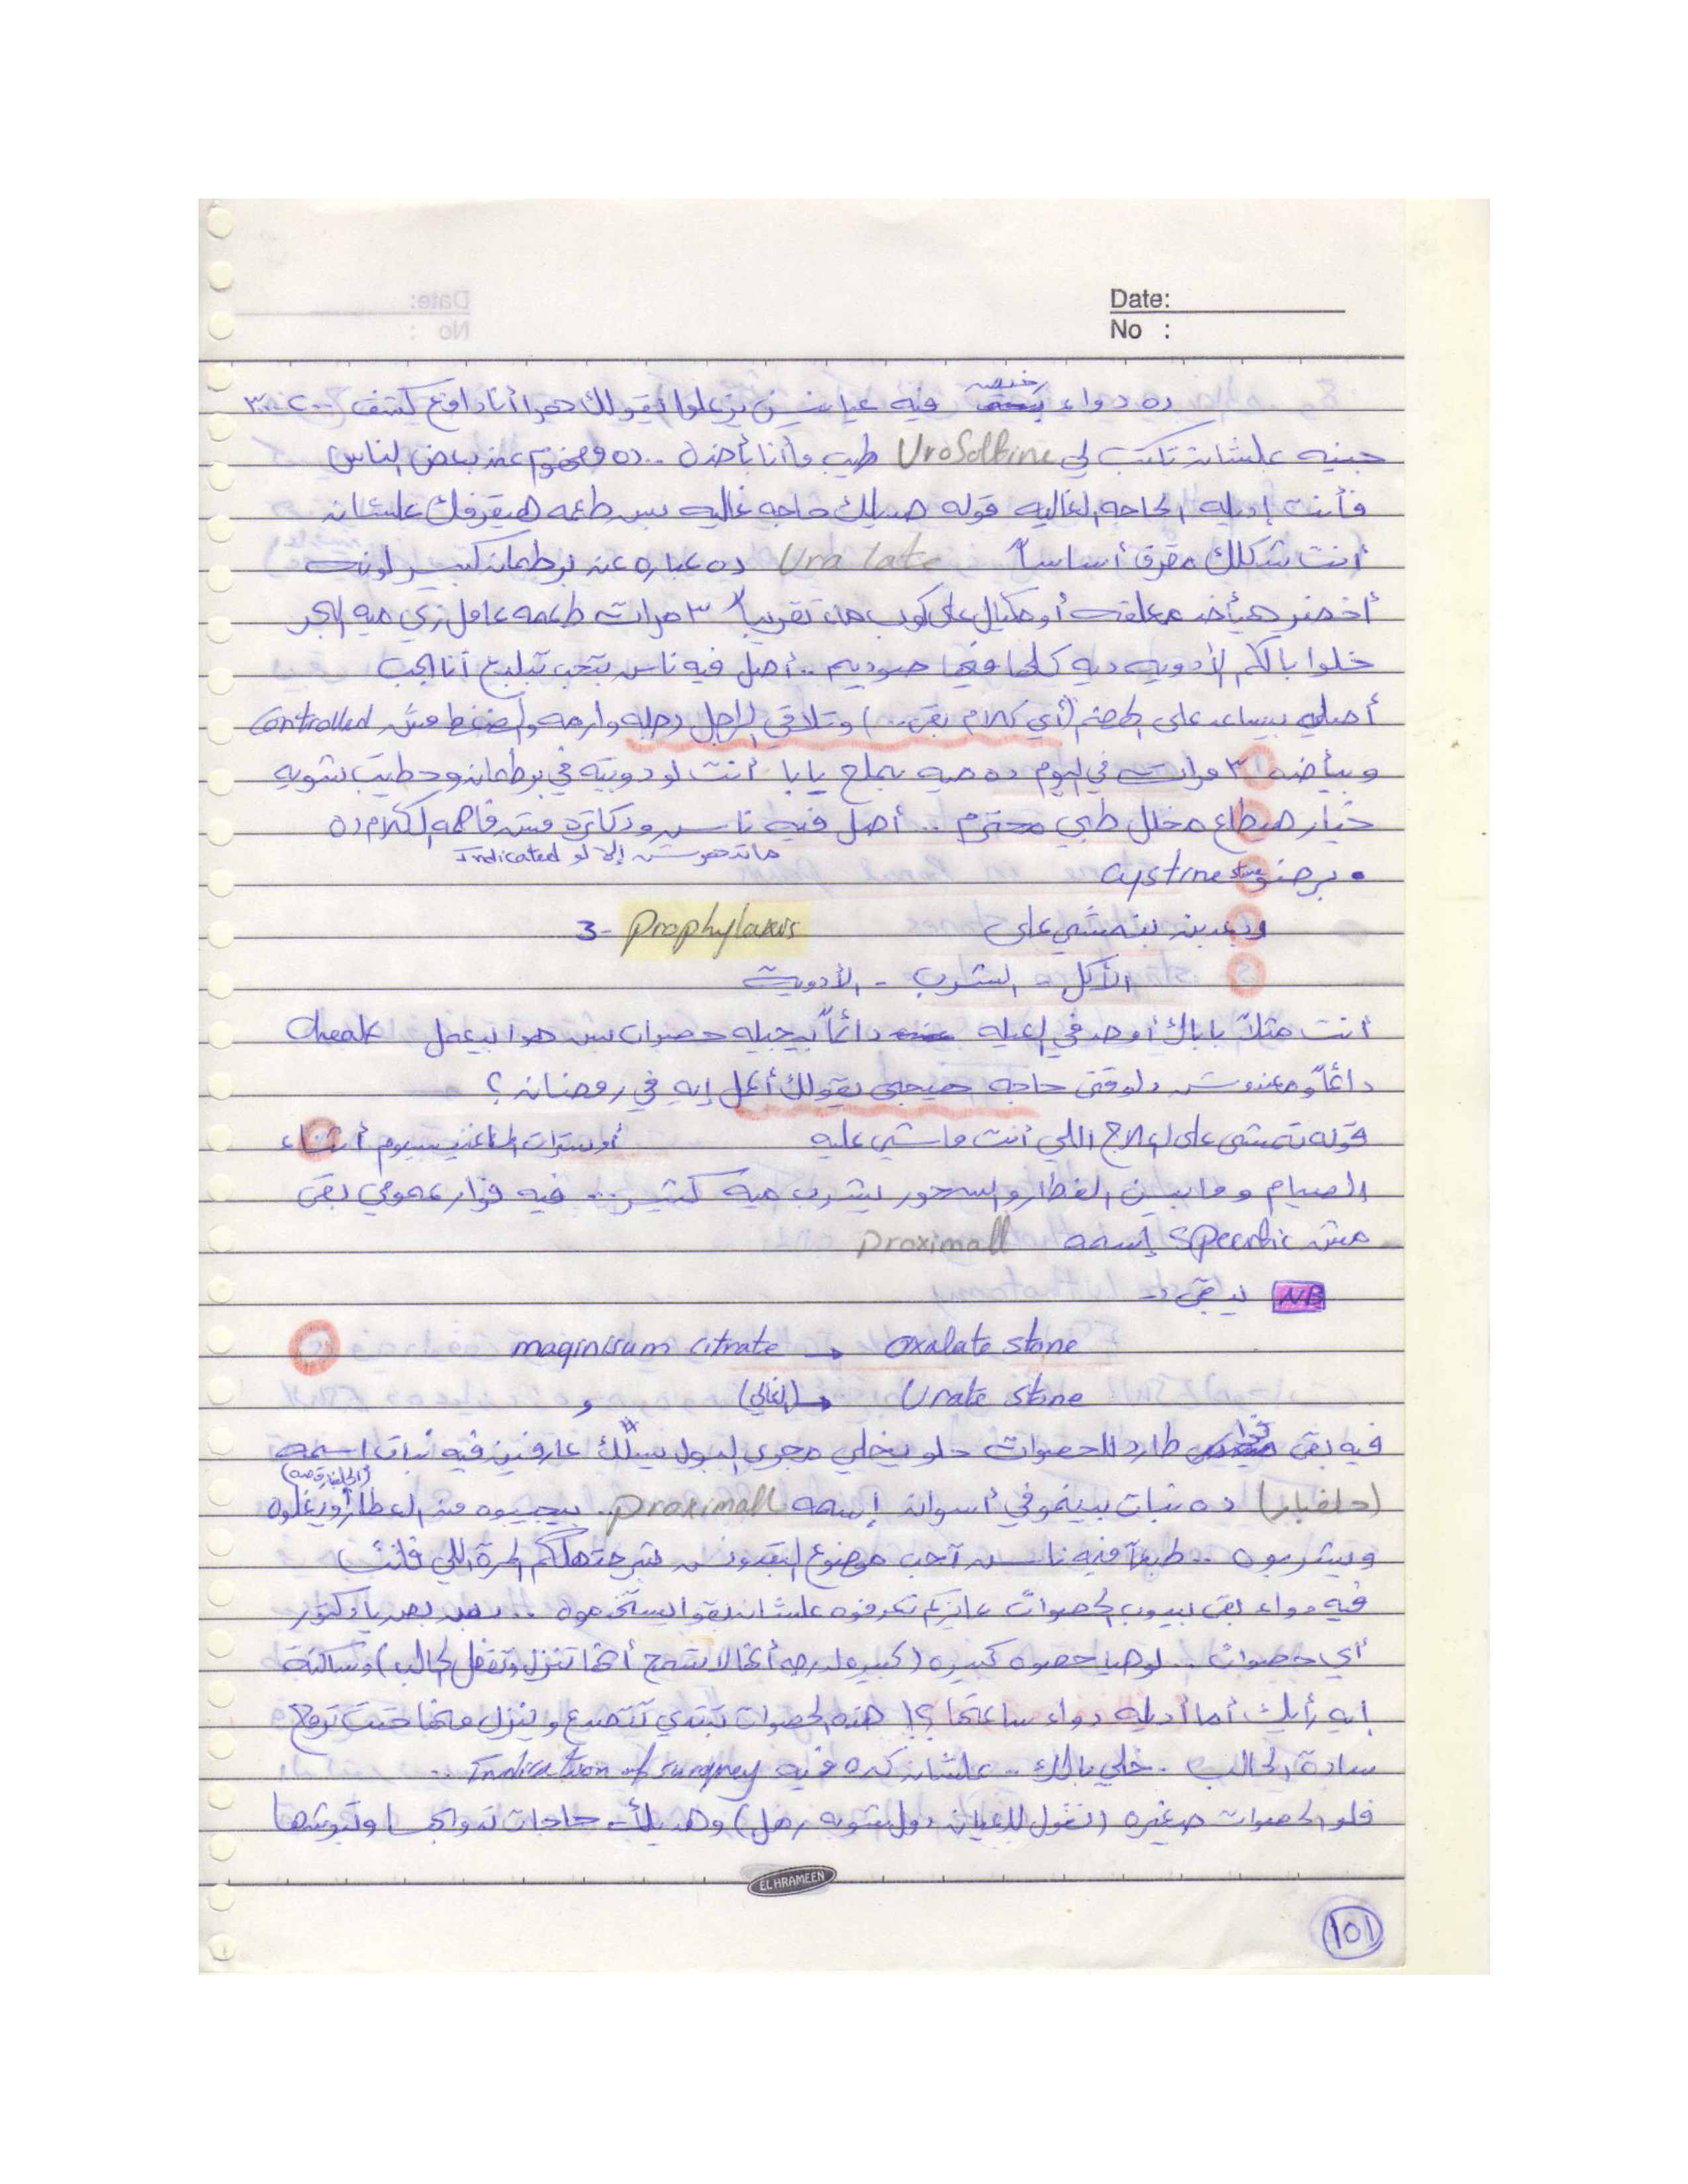 Date:
No :
ده دواء رخيص فيه عيانين يزعلوا يقولك دهوا أنا دافع كشف ٢٠٠ - ٣٠٠
جنيه علشان تكتب لي Urosolbine طيب ما أنا بأخده .. ده مفهوم عند بعض الناس
فأنت إديله الحاجه الغاليه قوله هديلك حاجه غاليه بس طعمه هيقرفك علشان
أنت شكلك مقرف أساساً Uralate ده عباره عن برطمان كبير لونه
أخضر هيأخد معلقه أو مكيال على كوب ماء تقريباً ٣ مرات طعمه عامل زي ميه البحر
خلوا بالكم الأدويه ديه كلها فيها صوديوم .. أصل فيه ناس بتحب تبلبع أنا احب
أصله بيساعد على الهضم (أي كلام بقى ..) وتلاقي الراجل رجله وارمه والضغط مش Controlled
وبيأخده ٣ مرات في اليوم ده ميه بملح يا بابا أنت لو دوبته في برطمان وحطيت شويه
خيار هيطلع مخلل طبي محترم .. أصل فيه ناس ودكاتره مش فاهمه الكلام ده
ماتدهوش إلا لو Indicated
• برضو cystine stone
3- Prophylaxis
وبعدين بنمشي على
الأكل - الشرب - الأدوية
أنت مثلاً باباك أو حد في العيله دائماً بيجيله حصوات بس هوا بيعمل Cheak
دائماً ومعندوش دلوقتي حاجه هييجي يقولك أعمل إيه في رمضان ؟
قوله تمشي على العلاج اللي أنت ماشي عليه أو سترات الماغنيسيوم أثناء
الصيام وما بين الفطار والسحور يشرب ميه كتير ... فيه فوار عمومي بقى
مش Specific إسمه Proximall
NB يبقى :-
maginisum citrate → oxalate stone
(الغالي) → Urate stone
فيه بقى فوار طارد للحصوات حلو يخلي مجرى البول يسلك عارفين فيه نبات اسمه
(حلفبار) ده نبات بينمو في أسوان إسمه Proximall. بيجيبوه من العطار ويغلوه
ويشربوه .. طبعاً فيه ناس تحب موضوع البقدونس شرحتهلكم المرة اللي فاتت
فيه دواء بقى بيدوب الحصوات عايزكم تعرفوه علشان بقوا يستخدموه .. بص بص يا دكتور
أي حصوات .. لو هيا حصوه كبيره (كبيره لدرجه أنها لا تسمح أنها تنزل وتقفل الحالب) وساكنة
إيه رأيك أما أديله دواء ساعتها ؟! هذه الحصوات تبتدي تتصدع وينزل منها حتت تروح
سادة الحالب . خلي بالك .. علشان كده فيه Indication of surgrey ..
فلو الحصوات صغيره (نقول للعيان دول شويه رمل) وهديلك حاجات تدوبها وتبوشها
EL HRAMEEN
101